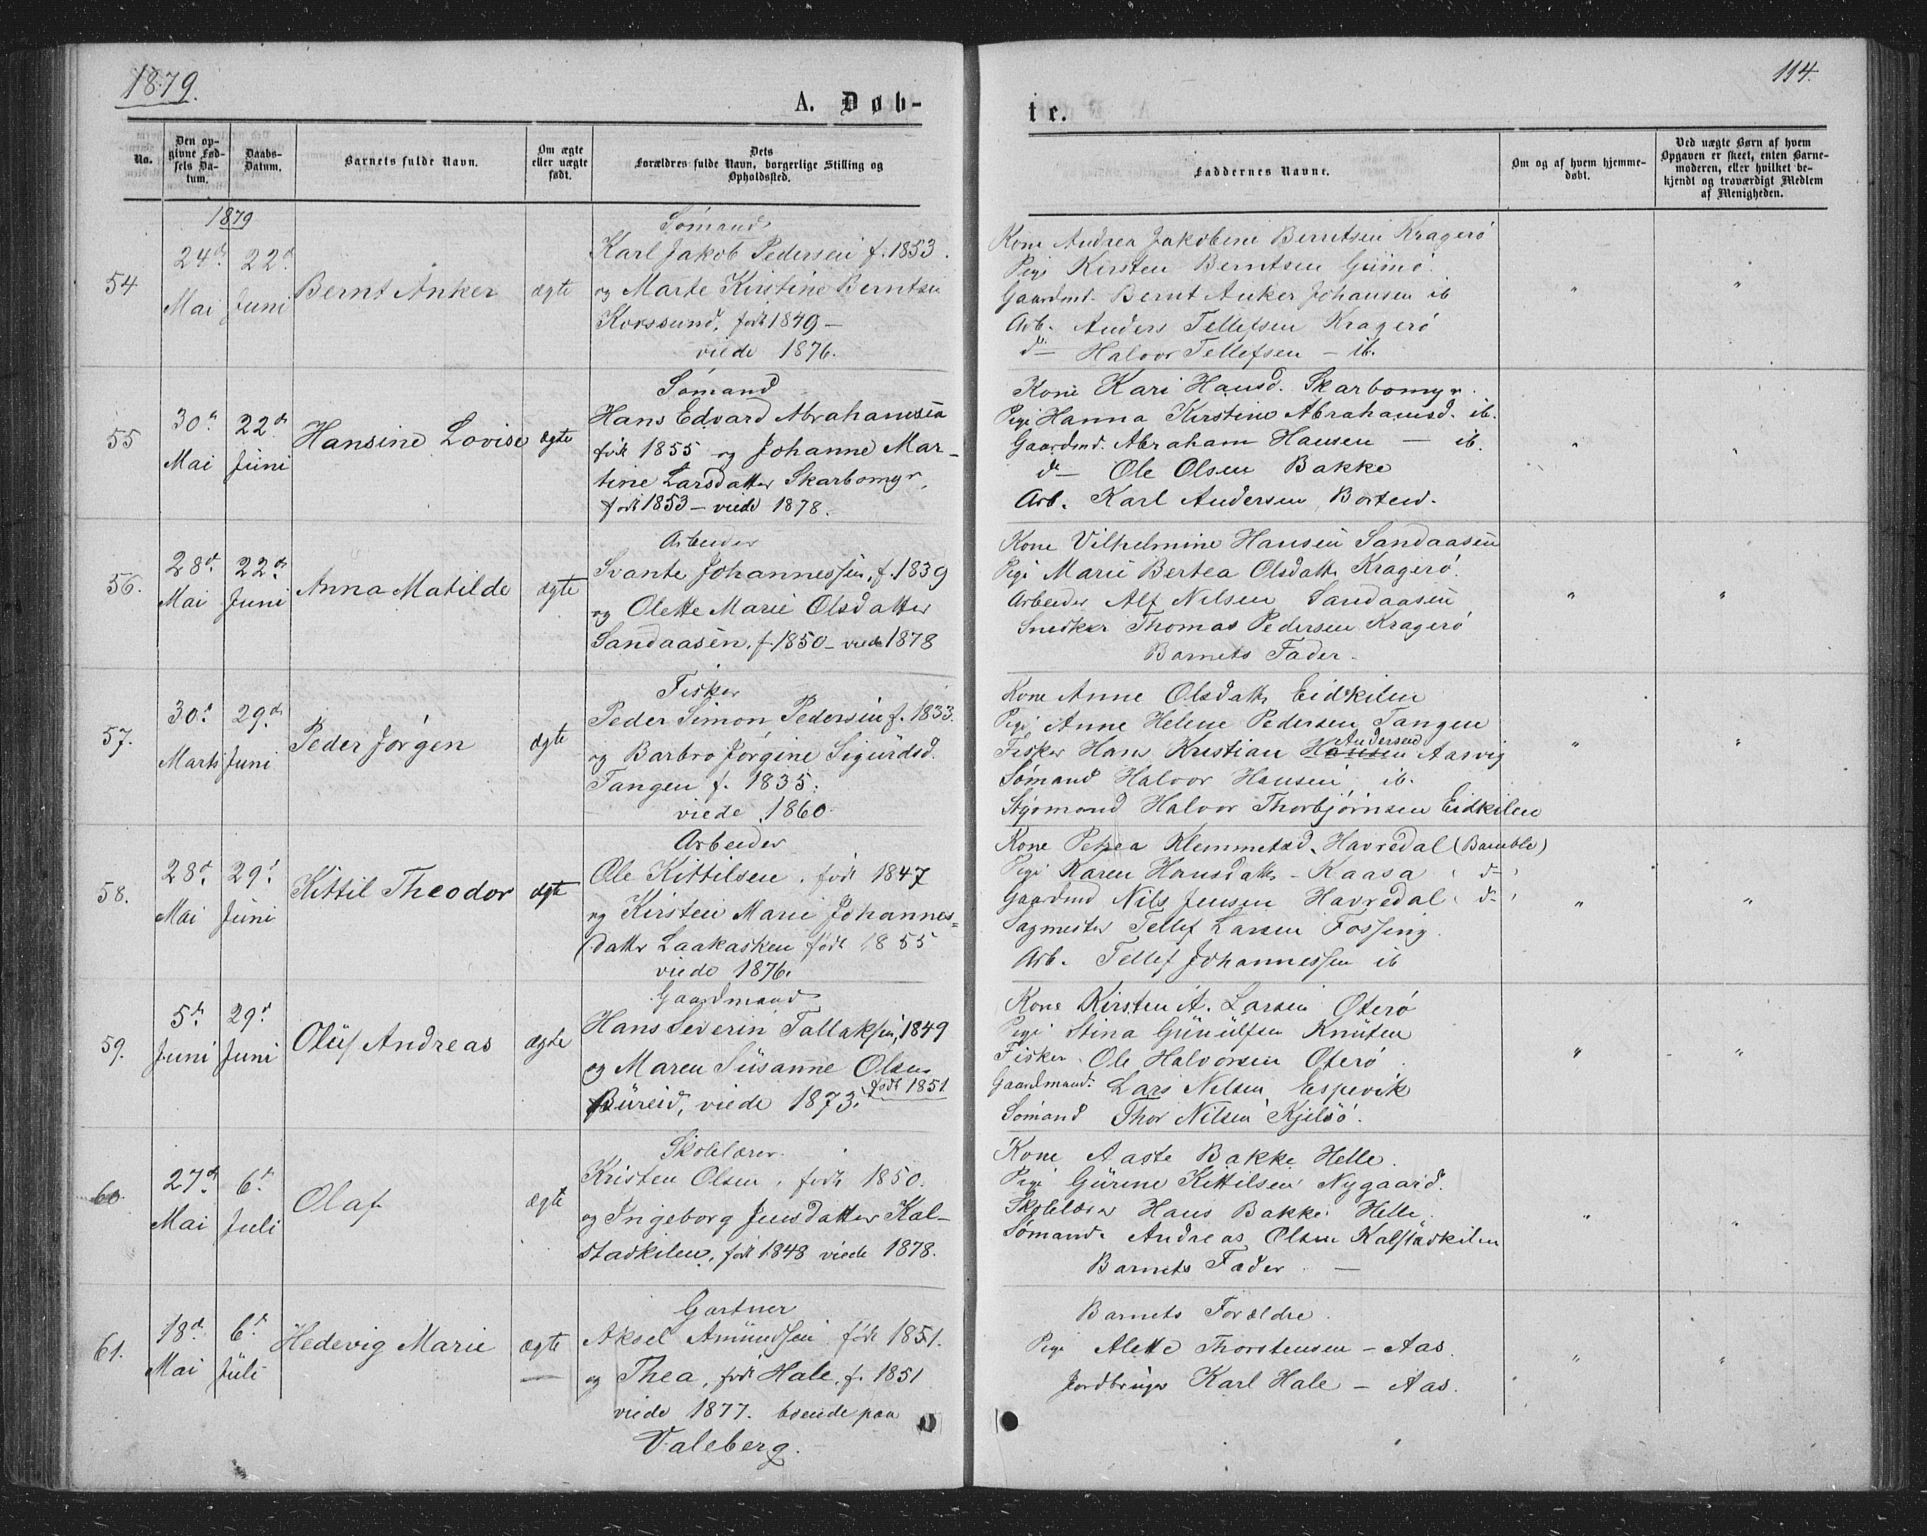 1879.
114.
A. Døb-
te.
No.
Den op-
givne Fød-
sels Da-
tum.
Daabs-
Datum.
Barnets fulde Navn.
Om ægte
eller uægte
født.
Dets
Forældres fulde Navn, borgerlige Stilling og
Opholdssted.
Faddernes Navne.
Om og af hvem hjemme-
døbt.
Ved uægte Børn af hvem
Opgaven er skeet, enten Barne-
moderen, eller hvilket be-
kjendt og troværdigt Medlem
af Menigheden.
1879
54
24de Mai
22d Juni
Bernt Anker
ægte
Sømand
Karl Jakob Pedersen f. 1853.
og Marte Kirstine Berntsen
Korssund, født 1849 –
viede 1876.
Kone Andrea Jakobine Berntsen Kragerø
Pige Kirsten Berntsen Gumø.
Gaardmd. Bernt Anker Johansen ib
Arb. Anders Tellefsen Kragerø
do – Halvor Tellefsen – ib.
55
30te Mai
22de Juni
Hansine Lovise
ægte
Sømand
Hans Edvard Abrahamsen
født 1855 og Johanne Mar-
tine Larsdatter Skarbomyr,
født 1853 – viede 1878.
Kone Kari Hansd. Skarbomyr.
Pige Hanna Kirstine Abrahamsd. ib.
Gaardmd. Abraham Hansen – ib.
do – Ole Olsen Bakke
Arb. Karl Andersen Borteid.
56.
28d. Mai
22de Juni
Anna Matilde
ægte
Arbeider
Svante Johannessen, f. 1839
og Olette Marie Olsdatter
Sandaasen, f. 1850 – viede 1878
Kone Vilhelmine Hansen Sandaasen
Pige Marie Bertea Olsdatt. Kragerø.
Arbeider Alf Nilsen Sandaasen
Snedker Thomas Pedersen Kragerø
Barnets Fader.
57.
30d Marts
29de Juni
Peder Jørgen
ægte
Fisker
Peder Simon Pedersen f. 1833.
og Barbro Jørgine Sigurdsd.
Tangen f. 1835.
viede 1860.
Kone Anne Olsdatt. Eidkilen
Pige Anne Helene Pedersen Tangen
Andersen
Fisker Hans Kristian Hansen Aasvig
Sømand Halvor Hansen ib.
Styrmand Halvor Thorbjørnsen Eidkilen
58.
28d. Mai
29d Juni
Kittil Theodor
ægte
Arbeider
Ole Kittilsen, født 1847
og Kirsten Marie Johannes-
datter Laakasken født 1855
viede 1876.
Kone Petrea Klemmetsd. Havredal (Bamble)
Pige Karen Hansdatt. – Kaasa ( d– )
Gaardmd Nils Jensen Havredal ( d– )
Sagmester Tellef Larsen Fossing.
Arb. Tellef Johannessen ib
59.
5te Juni
29d Juni
Oluf Andreas
ægte
Gaardmand
Hans Severin Tallaksen, 1849
og Maren Susanne Olsen
født 1851
Bureid, viede 1873.
Kone Kirsten A. Larsen Oterø
Pige Stina Gunulfsen Knuten
Fisker Ole Halvorsen Oterø.
Gaardmand. Lars Nilsen Espevik
Sømand Thor Nilsen Kjelsø.
60
27de Mai
6te Juli
Olaf
ægte
Skolelærer.
Kristen Olsen, født 1850.
og Ingeborg Jensdatter Kal-
stadkilen, født 1848 viede 1878.
Kone Aaste Bakke Helle.
Pige Gurine Kittilsen Nygaard.
Skolelærer Hans Bakke Helle.
Sømand. Andreas Olsen Kalstadkilen
Barnets Fader. –
61.
18de Mai
6te Juli
Hedevig Marie
ægte
Gartner
Aksel Amundsen født 1851.
og Thea, født Hale, f. 1851
viede 1877. boende paa
Valeberg.
Barnets Forældre.
Pige Alette Thorstensen – Aas.
Jordbruger Karl Hale – Aas.